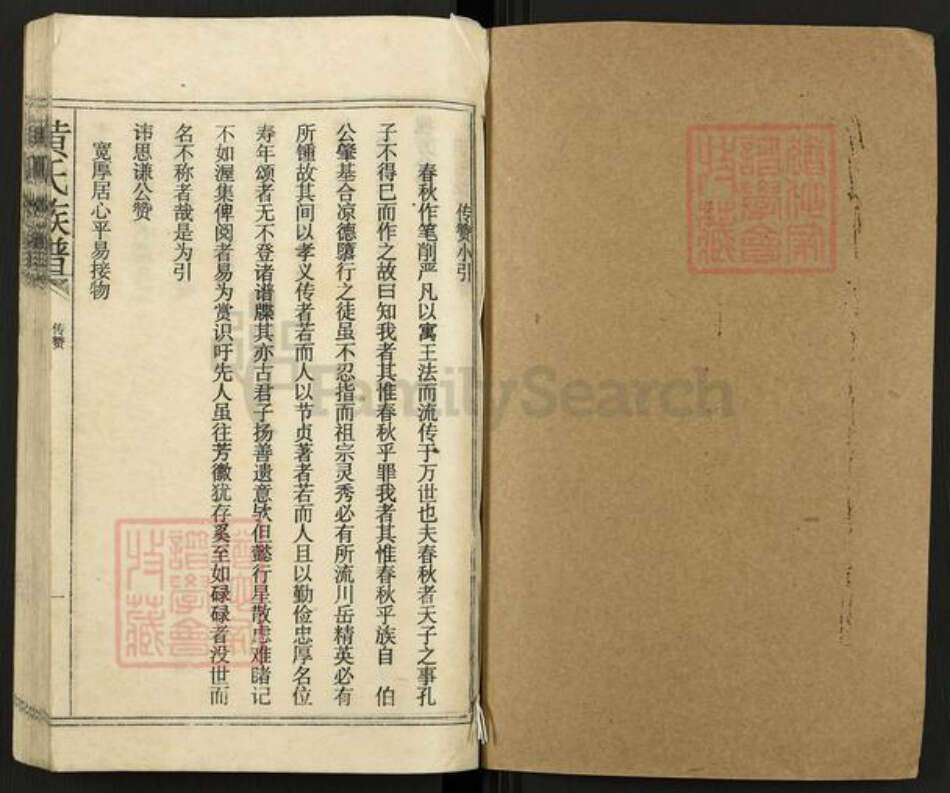 传赞小引
春秋作笔削严凡以寓王法而流传于万世也夫春秋者天子之事孔
子不得已而作之故曰知我者其惟春秋乎罪我者其惟春秋乎族自 伯
公肇基合凉德隳行之徒虽不忍指而祖宗灵秀必有所流川岳精英必有
所锺故其间以孝义传者若而人以节贞著者若而人且以勤俭忠厚名位
寿年颂者无不登诸谱牒其亦古君子扬善遗意欤但懿行星散虑难睹记
不如渥集俾阅者易为赏识吁先人虽往芳徽犹存奚至如碌碌者没世而
名不称者哉是为引
讳思谦公赞
宽厚居心平易接物
黄氏族谱
传赞
一
FamilySearch